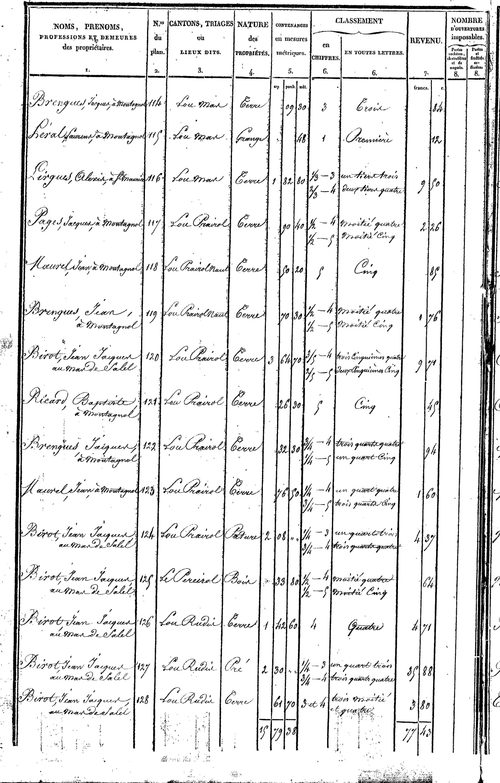 NOMS, PRENOMS,
PROFESSIONS ET DEMEURES
des propriétaires.
1.
N.os
du
plan.
2.
CANTONS, TRIAGES
ou
LIEUX DITS.
3.
NATURE
des
PROPRIÉTÉS.
4.
CONTENANCES
en mesures
métriques.
5.
CLASSEMENT
en
CHIFFRES.
6.
EN TOUTES LETTRES.
6.
REVENU.
7.
NOMBRE
D'OUVERTURES
imposables.
8.
8.
francs. c.
Brengues Jacques, à Montagnol 114 Lou Mas Terre 29 30 3 Trois 84
115 Lou Mas Grange 48 1 Première 12
116 Lou Mas Terre 1 82 80 1/3 — 3 un tiers trois
2/3 — 4 deux tiers quatre 9 50
Pages, Jacques, à Montagnol 117 Lou Prairol Terre 90 40 1/2 — 4 Moitié quatre
1/2 — 5 Moitié Cinq 2 26
Maurel, Jean à Montagnol 118 Lou Prairol Naut Terre 50 20 5 Cinq 85
Brengues, Jean,
à Montagnol 119 Lou Prairol Naut Terre 70 30 1/2 — 4 Moitié quatre
1/2 — 5 Moitié Cinq 1 76
Birot, Jean Jacques
au Mas de Salel 120 Lou Prairol Terre 3 64 70 3/5 — 4 trois Cinquièmes quatre
2/5 — 5 deux Cinquièmes Cinq 9 71
Ricard, Baptiste
à Montagnol 121 Lou Prairol Terre 26 30 5 Cinq 45
Brengues Jacques,
à Montagnol 122 Lou Prairol Terre 32 30 3/4 — 4 trois quarts quatre
1/4 — 5 un quart Cinq 94
Maurel, Jean à Montagnol 123 Lou Prairol Terre 76 50 1/4 — 4 un quart quatre
3/4 — 5 trois quarts Cinq 1 60
Birot, Jean Jacques
au Mas de Salel 124 Lou Prairol Pature 2 08 1/4 — 3 un quart trois
3/4 — 4 trois quarts quatre 4 37
Birot, Jean Jacques
au Mas de Salel 125 Le Pereirol Bois 33 80 1/2 — 4 Moitié quatre
1/2 — 5 Moitié Cinq 64
Birot, Jean Jacques
au Mas de Salel 126 Lou Rudié Terre 1 42 60 4 Quatre 4 71
Birot, Jean Jacques
au Mas de Salel 127 Lou Rudié Pré 2 30 1/4 — 3 un quart trois
3/4 — 4 trois quarts quatre 35 88
Birot, Jean Jacques,
au Mas de Salel 128 Lou Rudié Terre 61 70 3 et 4 trois Moitié
et quatre 3 80
15 79 38 77 43